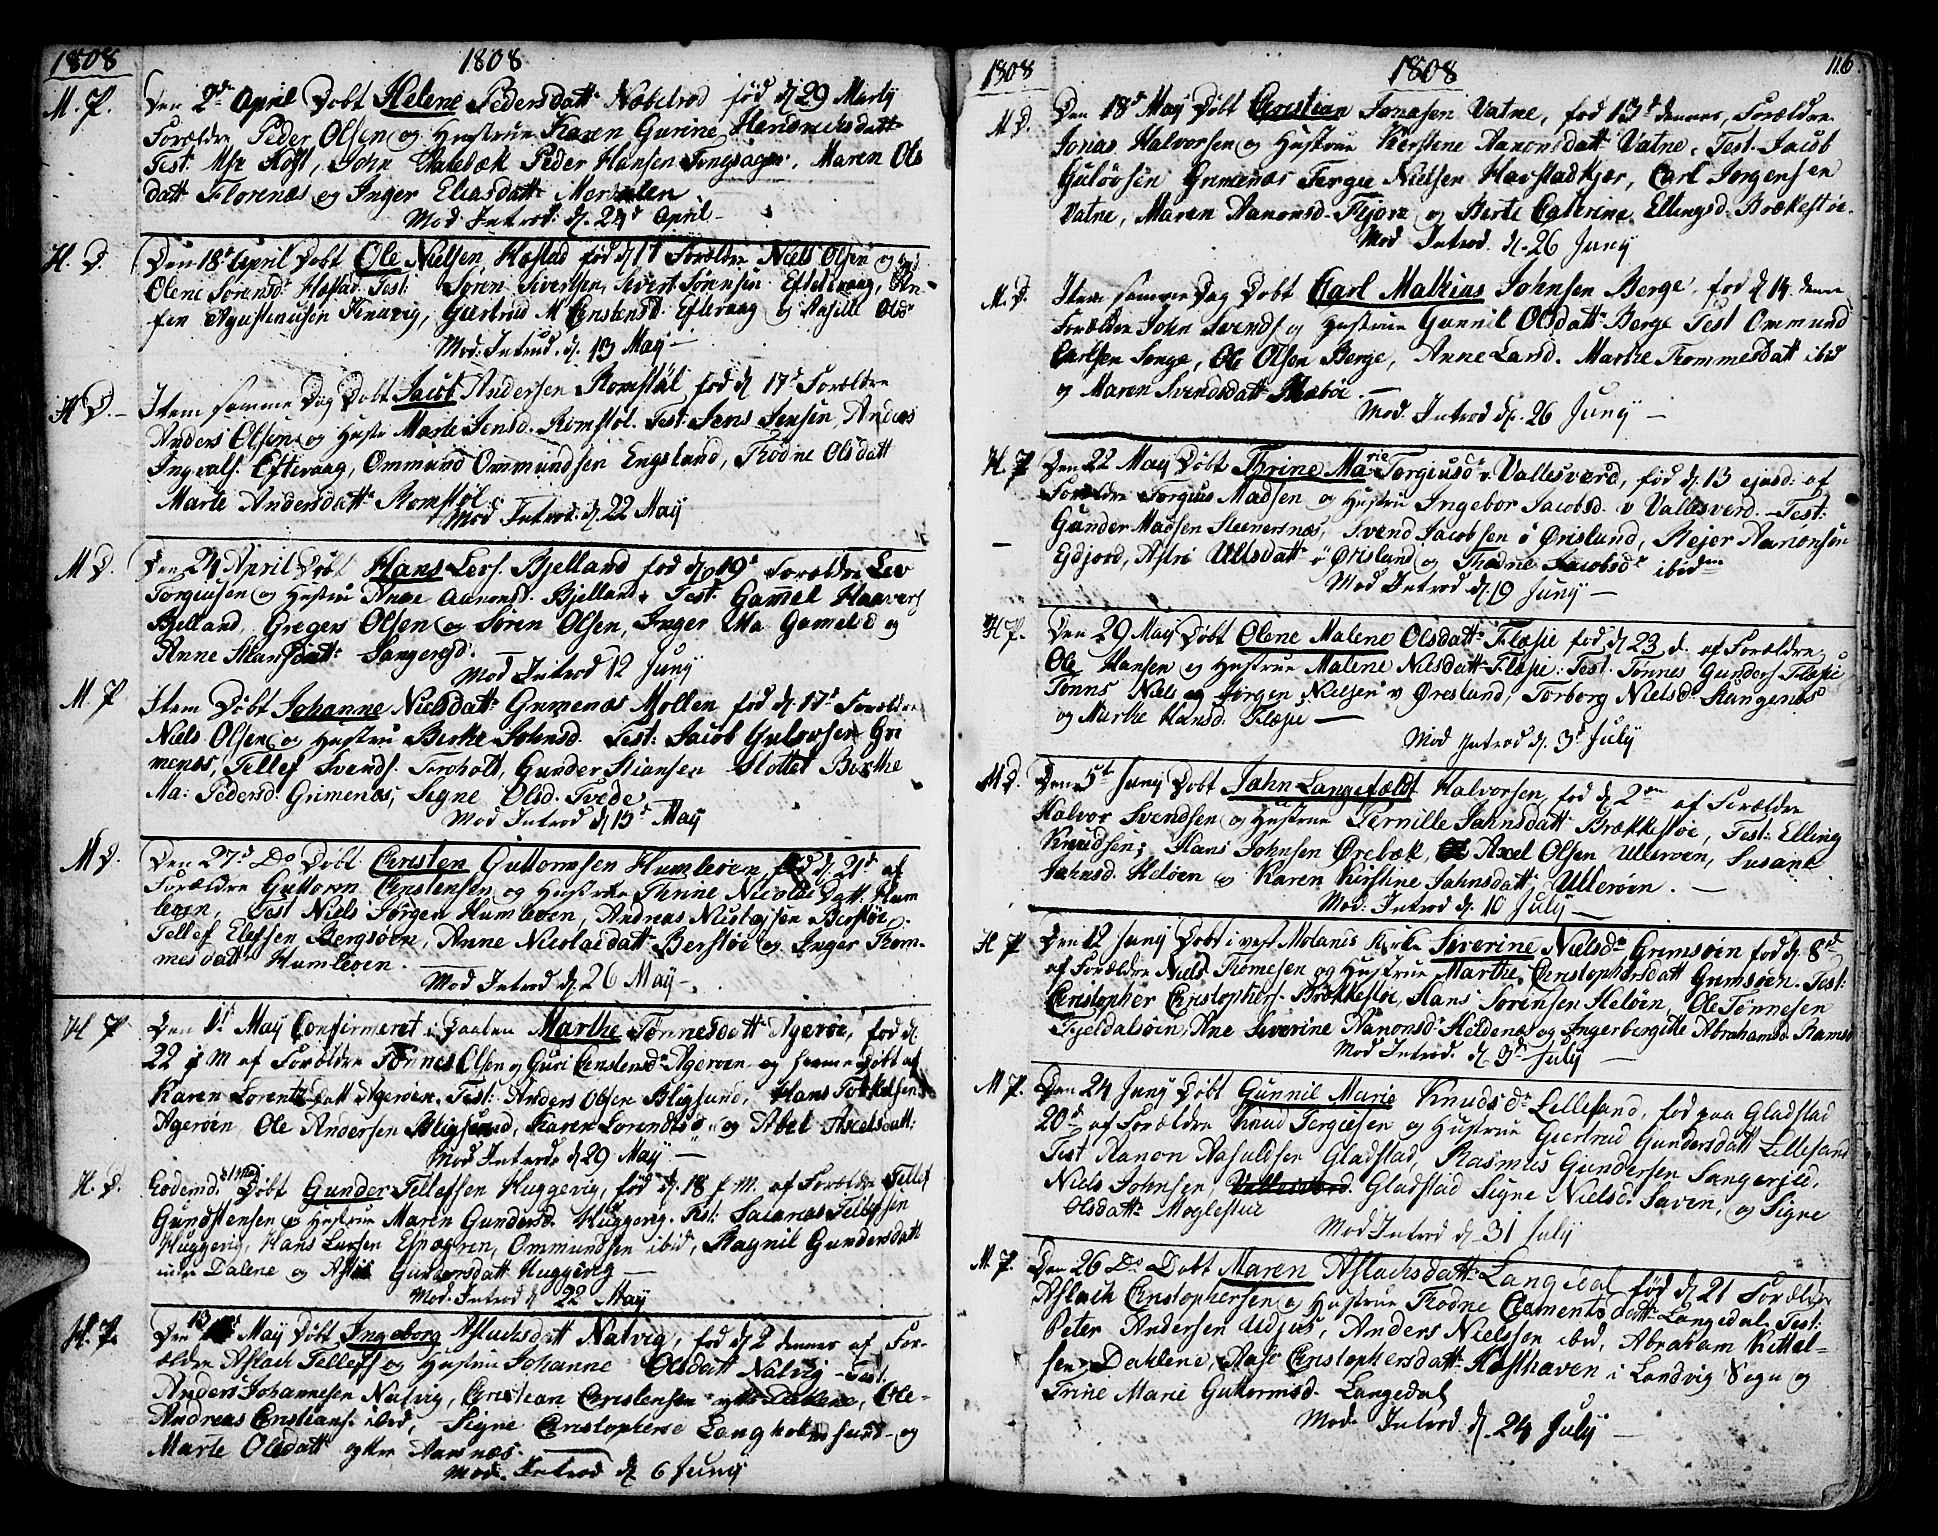 1808
1808
M. P.
Den 2den April Døbt Helene Pedersdatt. Næbelrød fød d. 29 Marty
Forældre Peder Olsen og Hustrue Karen Gurine Hendrichsdatt.
Test. Mse Høst, John Peder Hansen Tingsager, Maren Ols
datt Florenæs og Inger Eliasdatt.
Mod Introd: d. 24d April
H. D.
Den 18d April Døbt Ole Nielsen Høstad fød d. 11 Forældre Niels Olsen og
Olene Sørensd. Høstad. Test: Søren Sivertsen, Sivert Sørensen Eftevaag,
Agustinusen Gjertrud M. Christensd. Eftevaag og Olsd
Mod: Introd. d. 13 May
H D.
Item samme Dag Døbt Jacob Andersen Romstøl fød d 17d Forældre
Anders Olsen og Hustr Marte Jensd. Romstøl. Test: Jens Jensen, Andres
Eftevaag, Ommund Ommundsen Engeland, Thodne Olsdatt
Marte Andersdatt Romstøl
Mod Introd: d. 22 May
M D.
Den 24 April Døbt Hans Levs. Bjelland fød d. 19d Forældre Lev
Torgiusen og Hustru Anne Aanonsd. Bjelland. Test. Gamel
Bjelland, Gregers Olsen og Søren Olsen, Inger Ma. Gameld og
Anne
Mod Introd 12 Juny
M. P
Item Døbt Johanne Nielsdatt. Grimenæs Mollen fød d. 17d Forældre
Niels Olsen og Hustru Berthe Johnsd. Test: Jacob Gulovsen Gri
menæs, Tellef Svends. Gunder Stiansen Slottet Berthe
Ma: Pedersd. Grimenæs, Signe Olsd. Tvede
Mod Introd d 15d May
M D.
Den 27d Do Døbt Christen Guttormsen Humleøen, fød d. 21d af
Forældre Guttorm Christensen og Hustrue Thrine Nicolai Datt. Hum
leøen, Test Niels Jørgen Humleøen, Andreas Berstøe
Tellef Elefsen Bergsøen, Anne Nicolaidatt Berstøe og Inger Thom-
mesdatt Humleøen.
Mod Introd d. 26 May
H P
Den 1d May Confirmeret i Daaben Marthe Tønnesdatt. Agerøe, fød d
22 f M af Forældre Tønnes Olsen og Guri Christensd. Agerøen og hjemmedøbt af
Karen Lorentz datt Agerøen. Test: Anders Olsen Bligsund, Hans
Agerøen Ole Andersen Bligsund, Karen Lorendtsd og Abel Axelsdatt:
Mod Introd. d 29 May
H. D.
Eodemd. 1 May Døbt Gunder Tellefsen Huggevig, fød d. 18 f. M. af Forældre Tellef
Gundstensen og Hustrue Maren Gundersd. Huggevig. Test: Tellefsen
Huggevig, Hans Larsen Espegren, Ommundsen ibid, Ragnil Gundersdatt
Dalene og Gundersdatt Huggevig
Mod. Introd d 22 May
H. P.
Den 13 May Døbt Ingeborg Aslachsdatt Natvig, fød d 2 dennes af For-
ældre Aslach Tellefs og Hustrue Johanne Olsdatt Natvig Test
Anders Johannesen Natvig, Christian Christensen Dahlene, Ole
Andreas Christians. ibid, Signe Christophersd og
Marte Olsdatt yttre Aarnæs.
Mod. Introd d 6 Juny
1808
1808
116
M D.
Den 18d May Døbt Christian Jonasen Vatne, fød 13d dennes, Forældre
Jonas Halvorsen og Hustrue Kirstene Aanonsdatt Vatne. Test. Jacob
Guløvsen Grimenæs Tergie Nielsen Havstadkjær, Carl Jørgensen
Vatne, Maren Aanonsd. og Berte Caterine Ellingsd. Brækkestøe.
Mod Introd d. 26 Juny
M. D.
Item samme Dag Døbt Carl Mathias Johnsen Berge, fød d 14. denne
Forældre John Svends og Hustrue Gunnil Olsdatt. Berge Test Ommund
Carlsen Songe, Ole Olsen Berge, Anne Marthe Thommesdatt ibid
og Maren Svendsdatt
Mod. Introd d. 26 Juny
H. P
Den 22 May Døbt Thrine Marie Torgiusd. v Vallesverd, fød d. 13 ejusd. af
Forældre Torgius Madsen og Hustrue Ingebor Jacobsd. v Vallesverd. Test:
Gunder Madsen Steenersnæs, Svend Jacobsen ö Ørisland, Rejer Aanonsen
Eidjord, Astri Ullisdatt. ö Ørisland og Thodne Jacobsd. ibidm
Mod Introd d. 19 Juny
H P.
Den 29 May Døbt Olene Malene Olsdatt. Flæsie fød d 23 d. af Forældre
Ole Hansen og Hustrue Malene Nielsdatt. Flæsie. Test. Tønnes Gunders Flæsie
Tønns Niels og Jørgen Nielsen v Øresland, Torborg Nielsd. Stangenæs
og Marthe Hansd. Flæsie
Mod Introd d. 3d July
M D.
Den 5t Juny Døbt Jahn Langefældt Halvorsen, fød d 2en af Forældre
Halvor Svendsen og Hustrue Pernille Jahnsdatt Brækkestøe, Test: Elling
Knudsen, Hans Johnsen Ørebæk, Axel Olsen Ulleroen, Susane
Jahnsd. Heløen og Karen Kirstine Jahnsdatt. Ullerøen.
Mod: Introd d. 10 July
H P
Den 12 Juny Døbt i vest Molans Kirke Siverine Nielsd. Grimsøen fød d. 8d
af Forældre Niels Thomesen og Hustrue Marthe Christophersdatt Grimsøen. Test:
Christopher Christophers. Brækkestøe, Hans Sørensen Heløen, Ole Tønnesen
Fjeldalsøen, Ane Severine Aanonsd. og Ingerbergitte Abrahamsd. Ramsø
Mod Introd. d 3d July
M P.
Den 24 Juny Døbt Gunnil Marie Knudsd. Lillesand, fød paa Gladstad
20d af Forældre Knud Tergiesen og Hustrue Giertrud Gundersdatt Lillesand
Test Aanon Aasuldsen Gladstad, Rasmus Gundersen Sangerjie.
Niels Johnsen, Gladstad Signe Nielsd. Saven, og Signe
Olsdatt. Moglestue
Mod Introd d. 31 July
M. P.
Den 26 Do Døbt Maren Aslachsdatt. Langedal fød d. 21 Forældre
Aslach Christophersen og Hustrue Thodne Clements datt. Langedal Test:
Peter Andersen Udjus, Anders Nielssen ibid, Abraham Kittel-
sen Dahlene, Aase Christophersdatt. i Landvig Sogn og
Trine Marie Guttormsd. Langedal
Mod. Introd d. 24 July